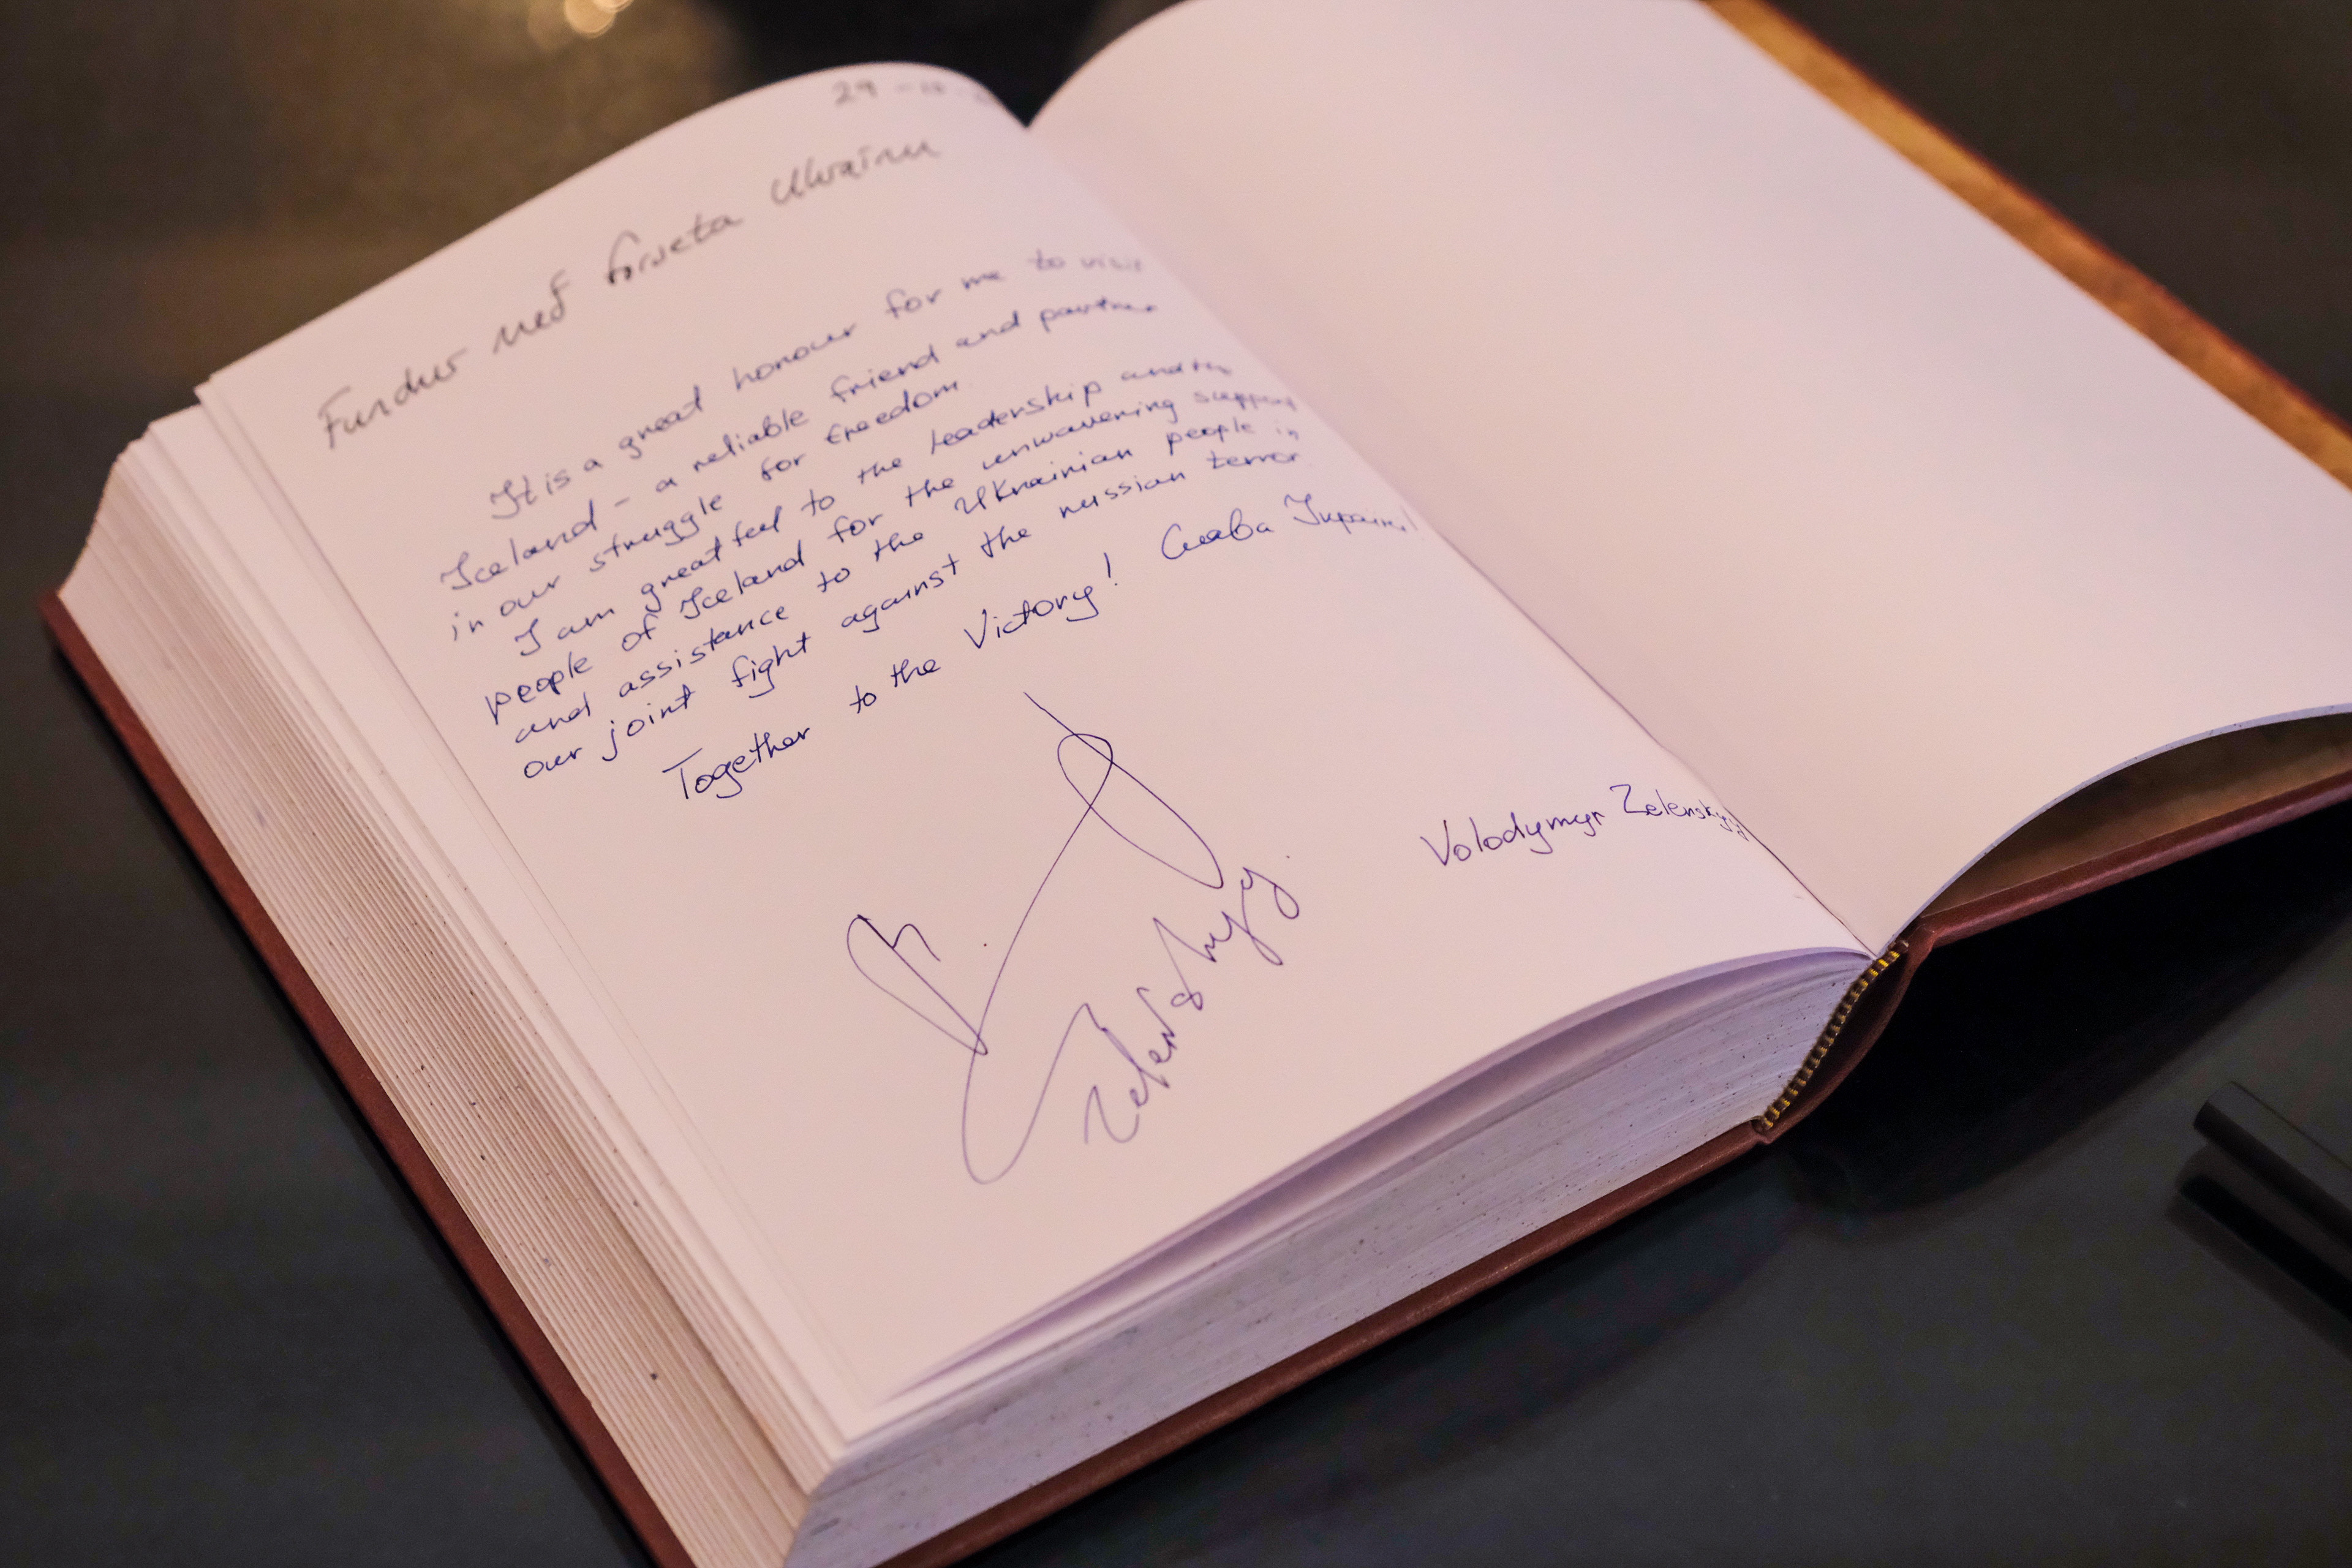 29
Fundur með forseta Úkraínu
It is a great honour for me to visit
Iceland - a reliable friend and partner
in our struggle for freedom.
I am greatful to the leadership and the
people of Iceland for the unwavering support
and assistance to the Ukrainian people in
our joint fight against the russian terror.
Together to the Victory! Слава Україні!
Zelenskyy
Volodymyr Zelenskyy